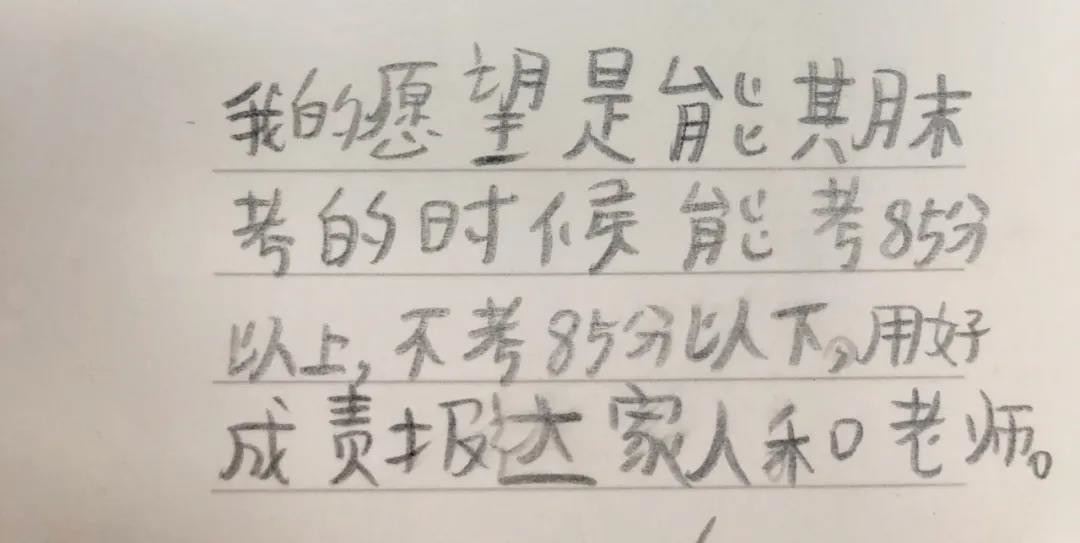 我的愿望是能其月末
考的时候能考85分
以上,不考85分以下,用好
成责报达家人和老师。